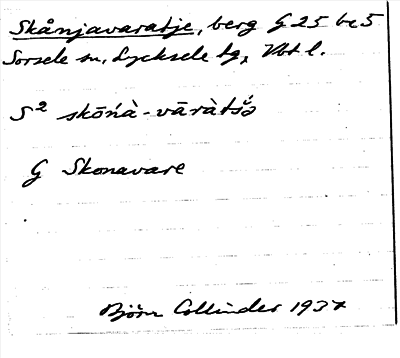 Skånjavaratje, berg G 25 bc 5
Sorsele sn, Lycksele lg, Vbt l.
S² skōńà-vāràtsə̌
G Skonavare
Björn Collinder 1937